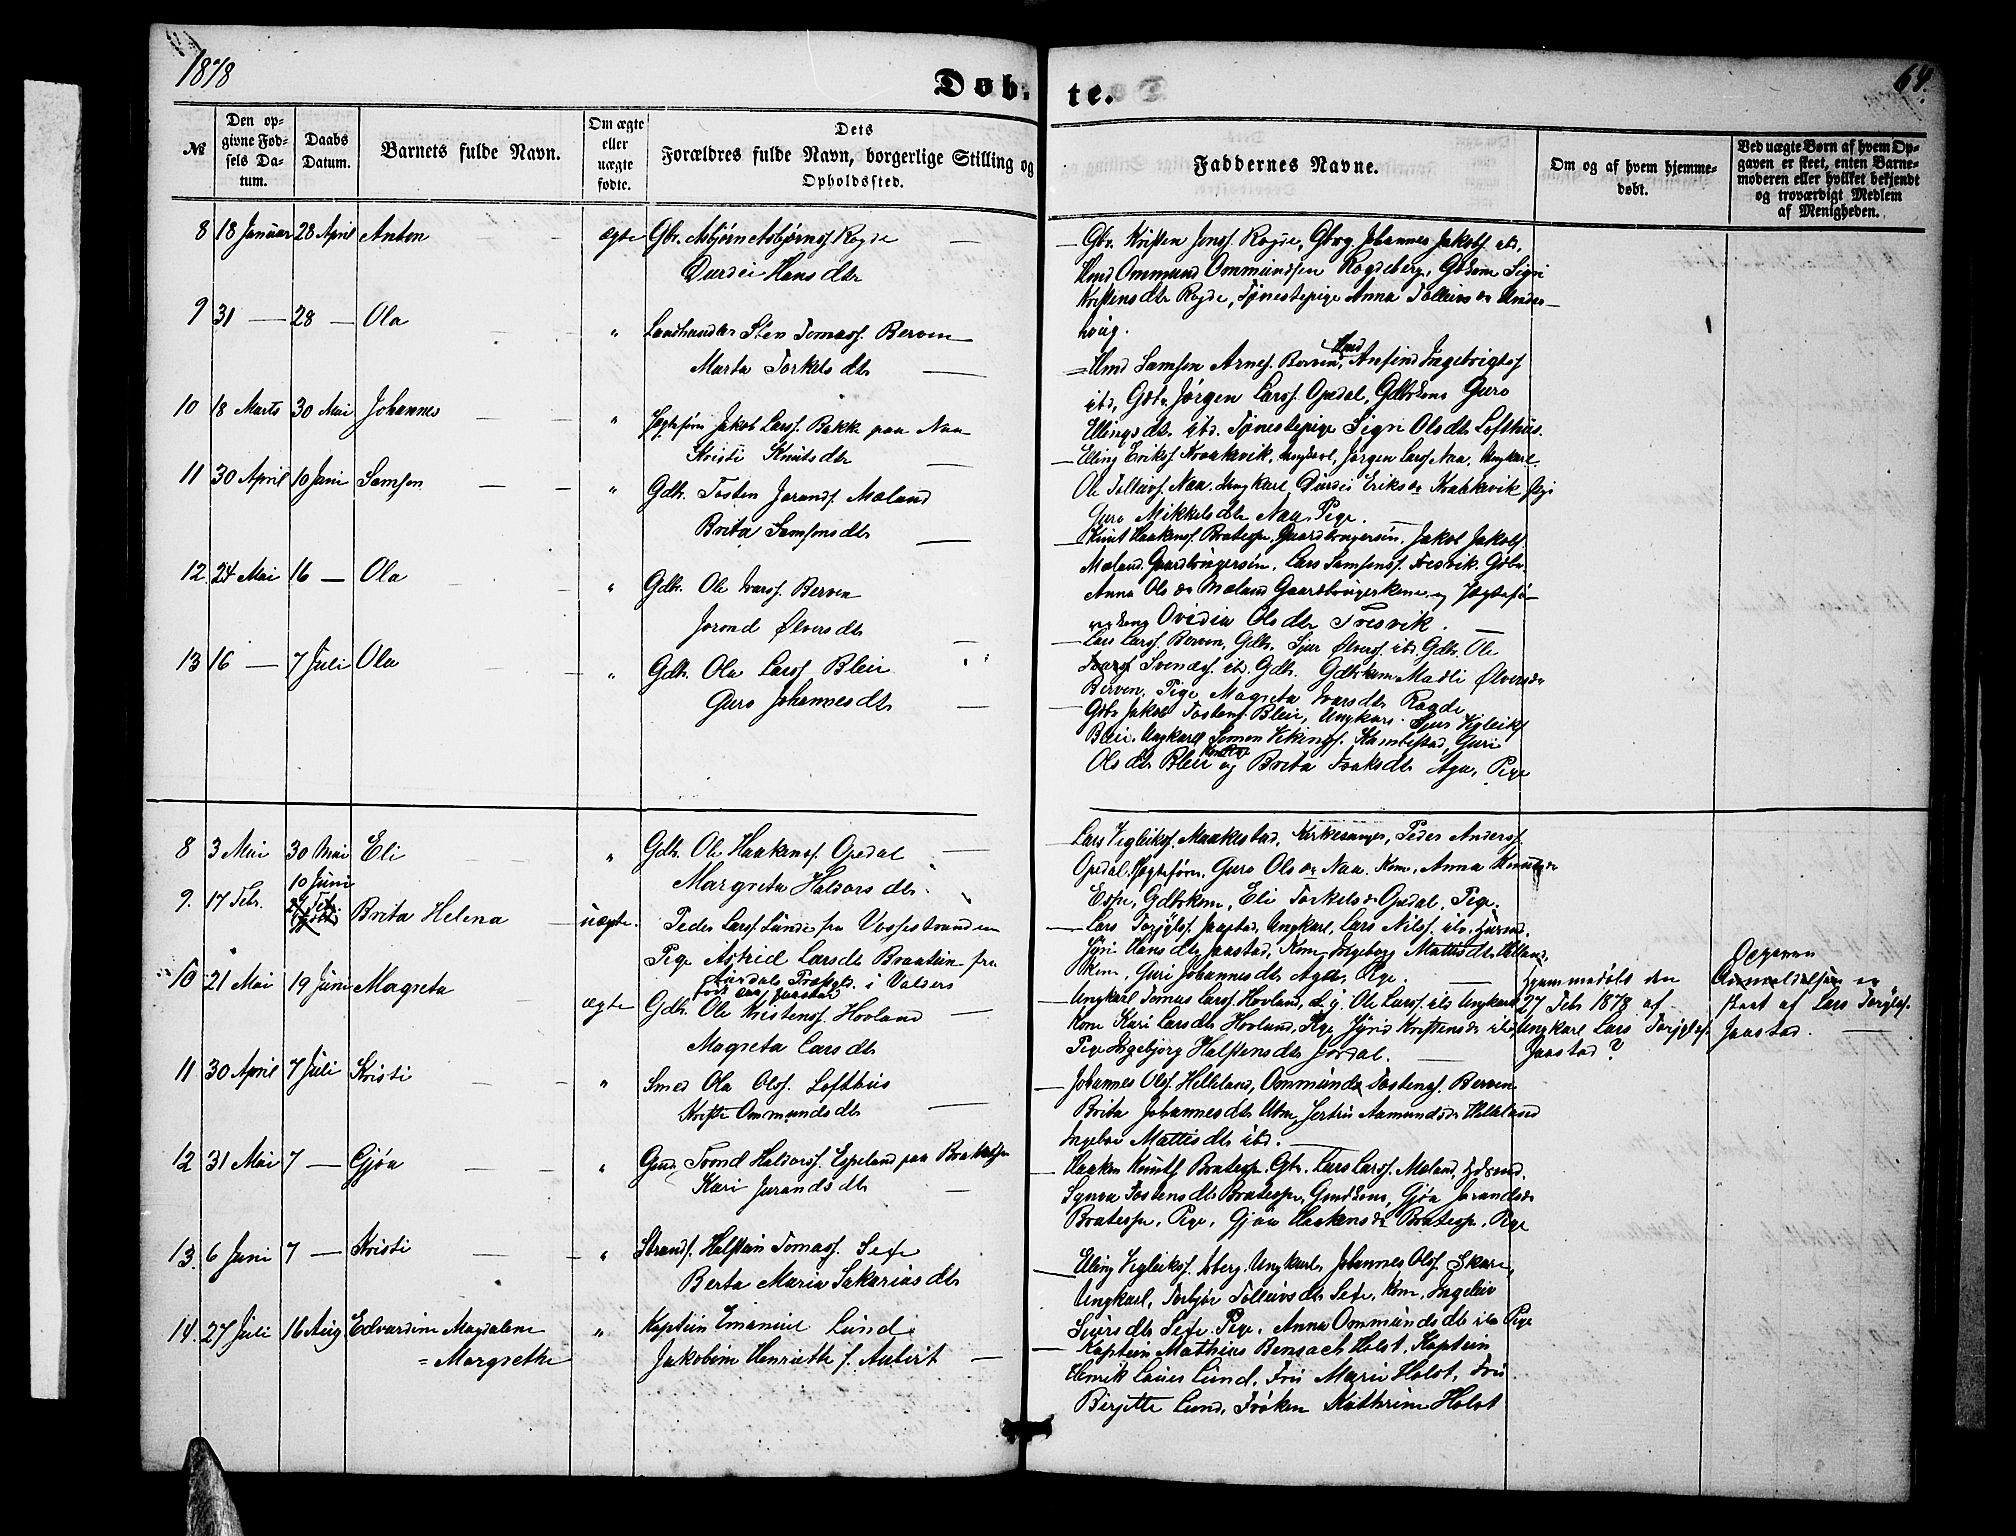 1878
Døb-
te.
64.
№
Den op-
givne Fød-
sels Da-
tum.
Daabs
Datum.
Barnets fulde Navn.
Om ægte
eller
uægte
fødte.
Dets
Forældres fulde Navn, borgerlige Stilling og
Opholdssted.
Faddernes Navne.
Om og af hvem hjemme-
døbt.
Ved uægte Børn af hvem Op-
gaven er skeet, enten Barne-
moderen eller hvilket bekjendt
og troværdigt Medlem
af Menigheden.
8 18 Januar 28 April Anton ægte Gbr. Asbjørn Asbjørnsf. Rogde
Durdei Hansdtr
Gbr. Kristen Jonsf. Rogde, Gbrg. Johannes Jakobsf. ibd,
Hmd Ommund Ommundsen Rogdeberg, Gbkone Sigri
Kristensdtr Rogde, Tjenestepige Anna Tolleivsdr Under-
haug.
9 31 — 28 — Ola " Landhandler Sten Tomasf. Berven
Marta Torkelsdtr
Hmd Samson Arnesf. Berven, Hmd Anfind Ingebrigtsf
ibd, Gbr. Jørgen Larsf. Opedal, Gdbrkone Guro
Ellingsdtr ibd. Tjenestepige Sigri Olsdtr Lofthus.
10 18 Marts 30 Mai Johannes " Jægtefører Jakob Larsf. Bakke paa Naa
Kristi Knutsdtr
Elling Eriksf Kraakvik, Ungkarl, Jørgen Larsf Naa, Ungkarl
Ole Tolleivsf. Naa, Ungkarl, Durdei Eriksdr Kraakvik, Pige
Guro Mikkelsdtr Naa, Pige.
11 30 April 10 Juni Samson " Gdbr. Tosten Jorandsf. Mæland
Brita Samsonsdtr
Knut Haakensf. Bratespe, Gaardbrugersøn, Jakob Jakobsf
Mæland, Gaardbrugersøn, Lars Samsonsf. Tresvik, Gdbr.
Anna Olsdr Mæland Gaardbrugerkone og Jægtefø-
rerkone Ovidia Olsdtr Tresvik.
12 24 Mai 16 — Ola " Gdbr. Ole Ivarsf. Berven
Jorond Ølversdtr
Lars Larsf. Berven, Gdbr. Sjur Ølversf. ibd. Gdbr. Ole
Svendsf. ibd. Gdbr. Gdbrkone Madli Ølversdr
Berven, Pige Magreta Ivarsdtr Rogde
13 16 — 7 Juli Ola " Gdbr. Ola Larsf Bleie
Guro Johannesdtr
Gdbr Jakob Tostensf. Bleie, Ungkars. Sjur Vigleiksf
Bleie, Ungkarl Simon Vikingsf. Kambestad, Guri
Olsdtr Bleie og Brita Isaksdtr Aga, Pige
8 3 Mai 30 Mai Eli " Gdbr. Ole Haakensf. Opedal
Margreta Haldorsdtr
Lars Vigleiksf. Maakestad, Kirkesanger, Peder Andersf.
Opedal, Jægtefører, Guro Olsdr Naa, Kone, Anna Knutsdr
Espe, Gdbrkone, Eli Torkelsdr Opedal, Pige.
9. 17 Febr. 10 Juni Brita Helena uægte. Peder Larsf. Lunde fra Vossestranden
Pige Astrid Larsdtr Braaten fra
Aurdals Præstgld. i Valders
Lars Torgilsf. Jaastad, Ungkarl, Lars Nilsf. ibd,
Hansdtr Jaastad, Kone, Ingeborg Mattisdtr Helland,
Kone, Guri Johannesdtr Aga, Pige.
Hjemmedøbt den
27 Febr 1878 af
Ungkarl Lars Torgilsf.
Jaastad?
Opgaven
Anmeldelsen er
skeet af Lars Torgilsf.
Jaastad.
10 21 Mai 19 Juni Magreta ægte Gdbr. Ole Kristensf. Hovland
Magreta Larsdtr
Ungkarl Tomas Larsf. Hovland, Ole Larsf. ibd Ungkarl
Kone Kari Larsdtr Hovland, Pige Kristensdr ibd,
Pige Ingebjørg Halstensdtr Jordal.
11 30 April 7 Juli Kristi " Smed Ola Olsf. Lofthus
Kristi Ommundsdtr
Johannes Olsf. Helleland, Ommund Tostensf. Berven
Brita Johannesdtr Utne, Aamundsdr Helleland
Ingebor Mattisdtr ibd.
12 31 Mai 7 — Gjøa " Trond Haldorsf. Espeland paa Bratespe
Kari Jorandsdtr
Haaken Knutsf Bratespe, Gbr. Lars Larsf. Mæland,
Synva Tostensdtr Bratespe, Gjøa Jorandsdr
Bratespe, Pige, Gjøa Haakensdr Bratespe, Pige
13. 6 Juni 7 — Kristi " Strands. Halstein Tomasf. Sexe
Berta Maria Sakariasdtr
Elling Vigleiksf. Aaberg, Ungkarl, Johannes Olsf. Skare,
Ungkarl, Torbjør Tolleivsdtr Sexe, Kone, Ingeleiv
Sjursdtr Sexe, Pige, Anna Ommundsdtr ibd Pige
14. 27 Juli 16 Aug Edvardine Magdalene
= Margrethe
" Kaptein Emanuel Lund
Jakobine Henriette f. Aubert
Kaptein Mathias Bonsach Holst, Kaptein
Henrik Lund, Fru Marie Holst, Fru
Birgitte Lund, Frøken Kathrine Holst